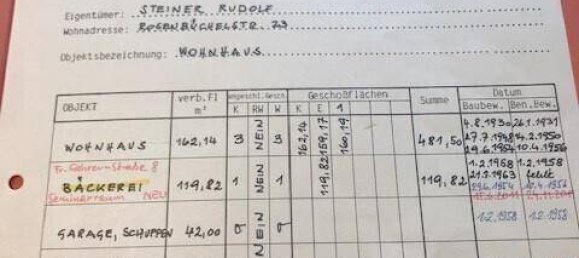 Eigentümer: STEINER RUDOLF
Wohnadresse: ROSENBÜCHELSTR. 23
Objektsbezeichnung: WOHNHAUS
OBJEKT verb.Fl m² K RW W K E 1 Summe Datum
Geschoßflächen
Baubew. Ben.Bew.
4.8.1930 26.1.1931
WOHNHAUS 162,14 3 NEIN 3 162,14 159,17 160,19 481,50 17.7.1948 14.2.1950
29.6.1954 10.4.1956
Straße 8 1.2.1958 1.2.1958
BÄCKEREI 119,82 1 NEIN 1 119,82 119,82 21.3.1963 fehlt
Seminarraum NEU 29.6.1954 10.4.1956
GARAGE, SCHUPPEN 42,00 0 NEIN 0 1.2.1958 1.2.1958